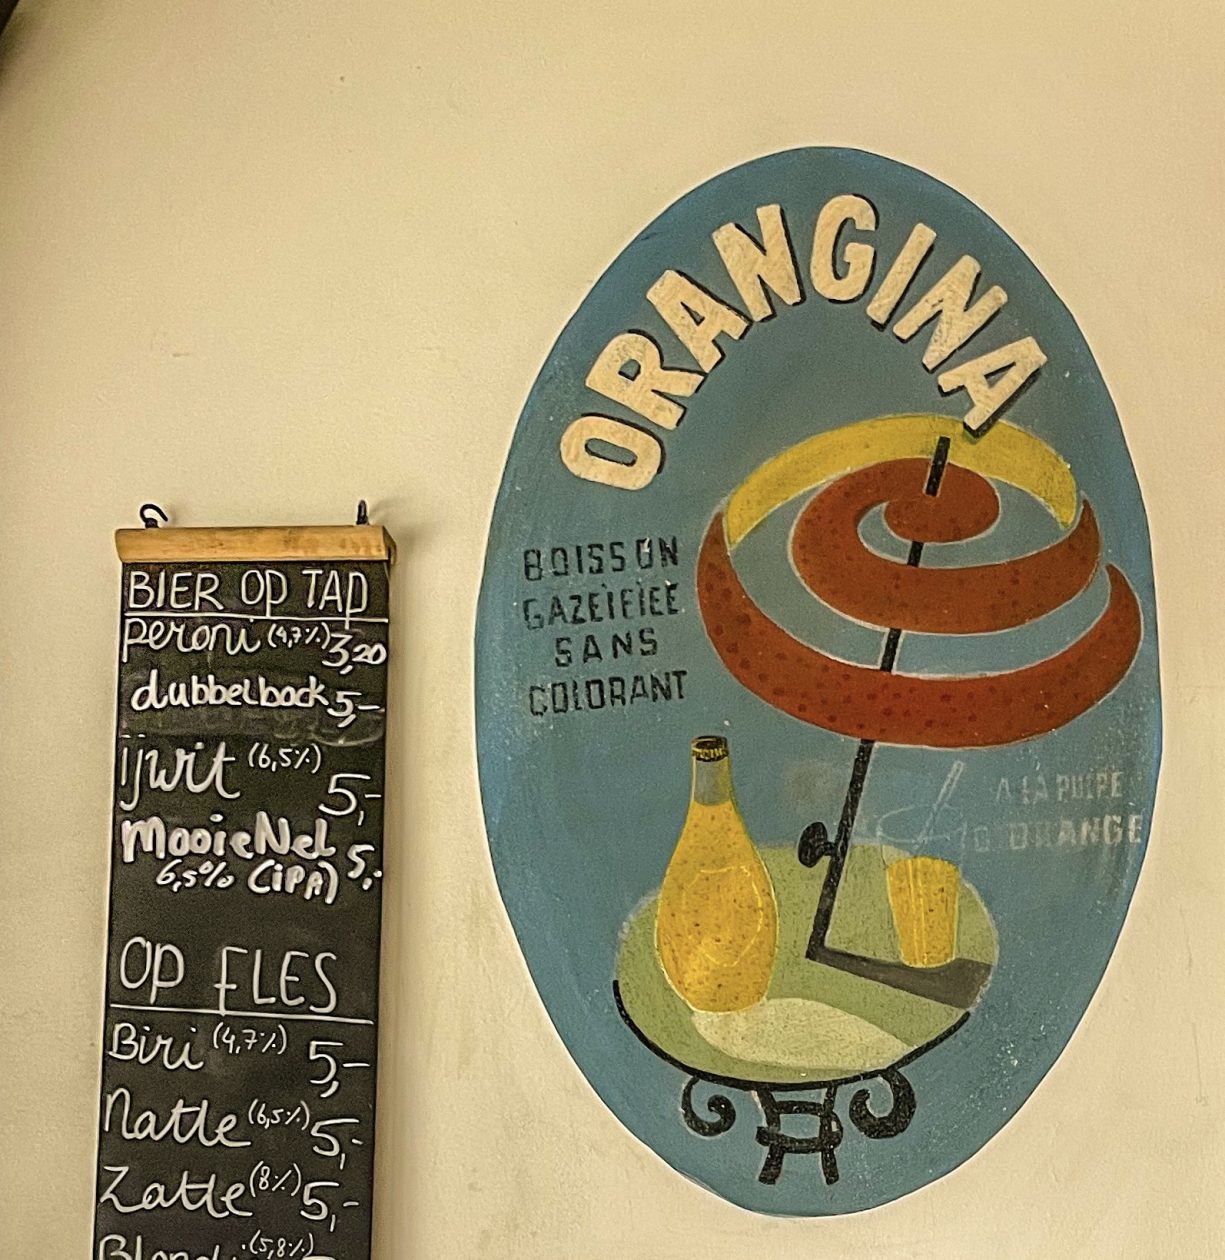 BIER OP TAP
Peroni (4,7%) 3,20
dubbelbock 5,-
ijwit (6,5%) 5,-
MooieNel 5,-
6,5% (iPA)
OP FLES
Biri (4,7%) 5,-
Natte (6,5%) 5,-
Zatte (8%) 5,-
(5,8%)
ORANGINA
BOISSON
GAZEÏFIEE
SANS
COLORANT
A LA PULPE
D'ORANGE